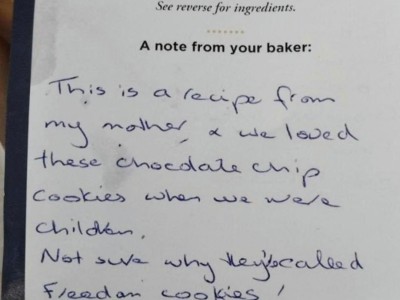 See reverse for ingredients.
A note from your baker:
This is a recipe from
my mother, & we loved
these chocolate chip
cookies when we were
children.
Not sure why they's called
Freedom cookies!